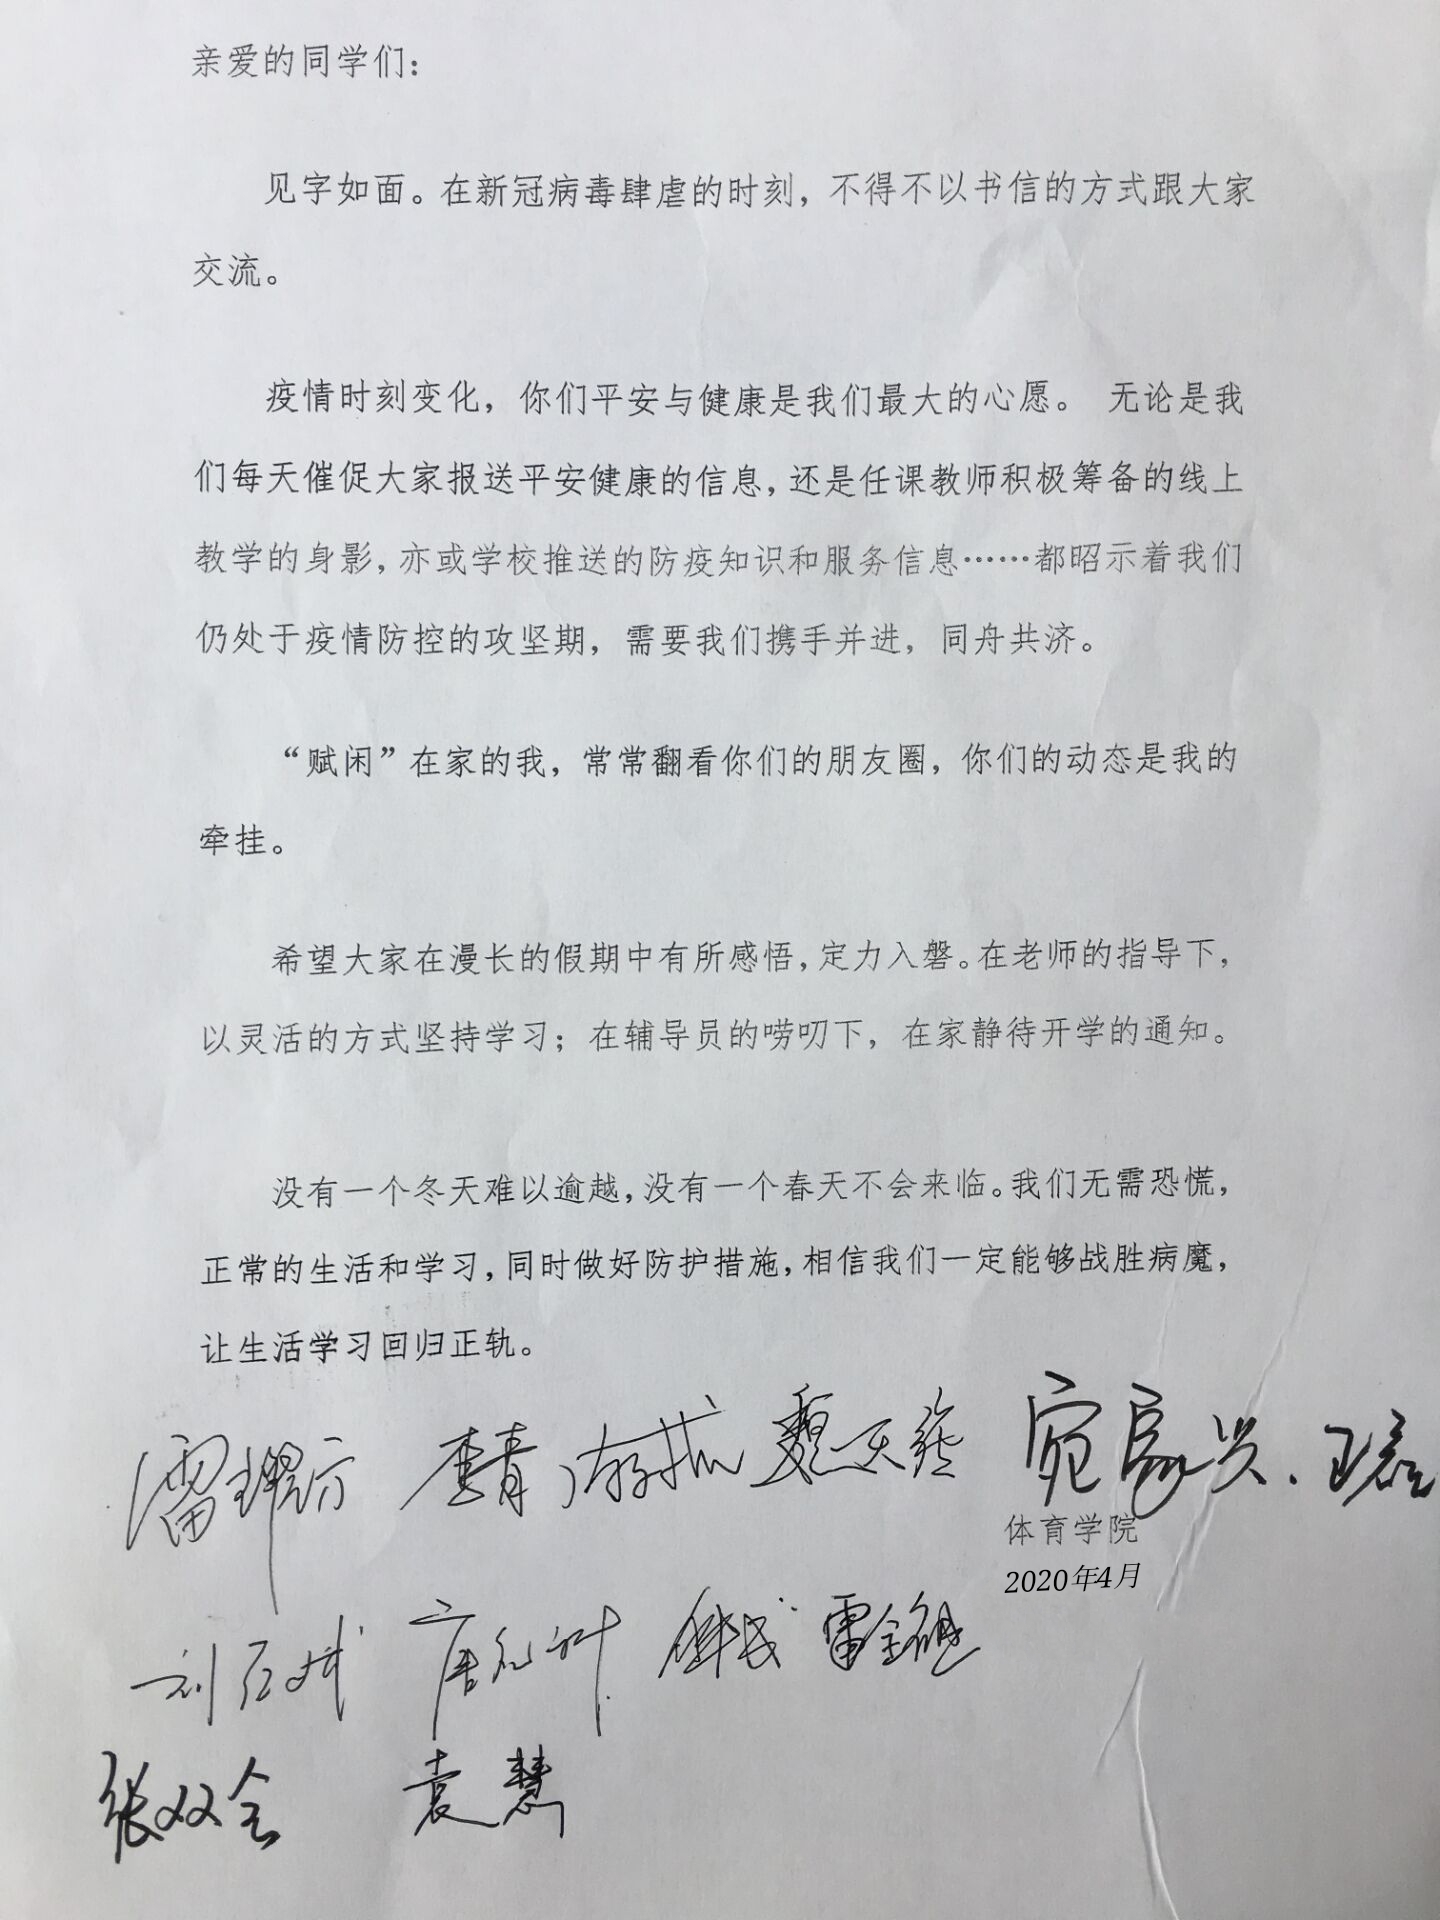 亲爱的同学们：
见字如面。在新冠病毒肆虐的时刻，不得不以书信的方式跟大家
交流。
疫情时刻变化，你们平安与健康是我们最大的心愿。 无论是我
们每天催促大家报送平安健康的信息，还是任课教师积极筹备的线上
教学的身影，亦或学校推送的防疫知识和服务信息……都昭示着我们
仍处于疫情防控的攻坚期，需要我们携手并进，同舟共济。
“赋闲”在家的我，常常翻看你们的朋友圈，你们的动态是我的
牵挂。
希望大家在漫长的假期中有所感悟，定力入磐。在老师的指导下，
以灵活的方式坚持学习；在辅导员的唠叨下，在家静待开学的通知。
没有一个冬天难以逾越，没有一个春天不会来临。我们无需恐慌，
正常的生活和学习，同时做好防护措施，相信我们一定能够战胜病魔，
让生活学习回归正轨。
李青
体育学院
2020年4月
张双全 袁慧